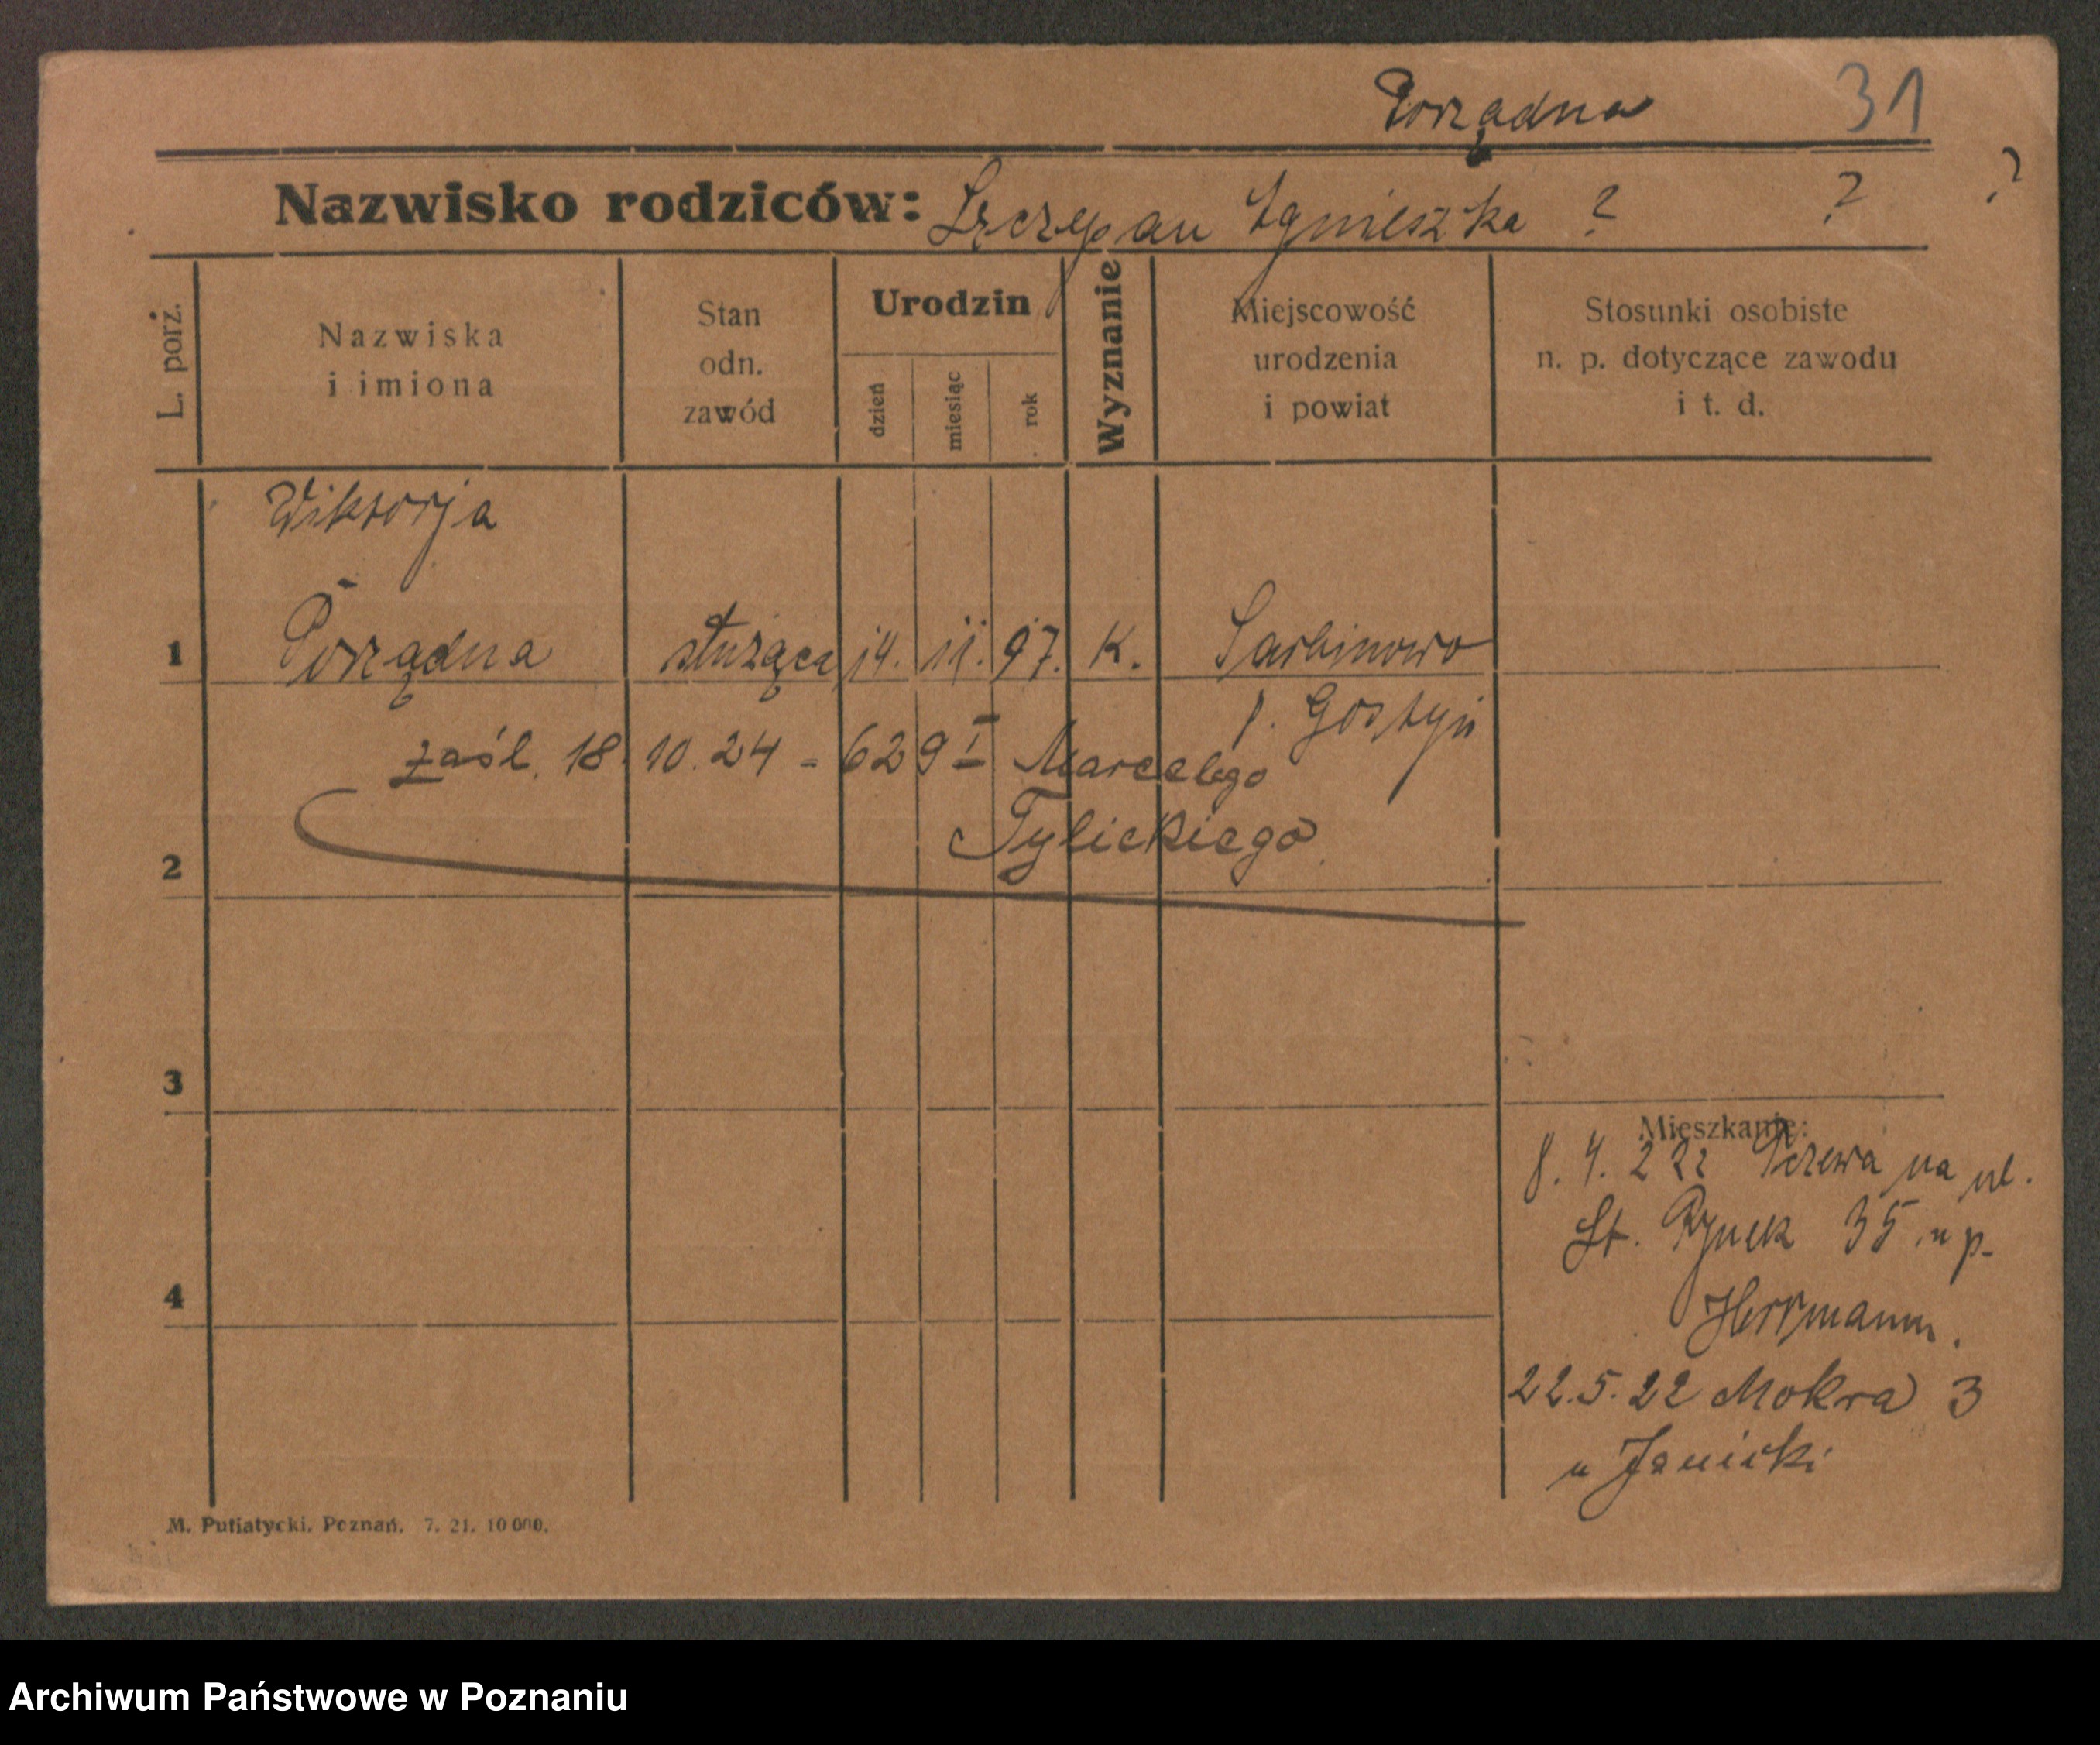 Porządna 31
Nazwisko rodziców: Szczepan Agnieszka ? ? ?
L. porz.
Nazwiska
i imiona
Stan
odn.
zawód
Urodzin
dzień
miesiąc
rok
Wyznanie
Miejscowość
urodzenia
i powiat
Stosunki osobiste
n. p. dotyczące zawodu
i t. d.
Wiktorja
1 Porządna służąca 14. 11. 97. K. Sarbinowo
p. Gostyń
zaśl. 18. 10. 24 - 629 I Marcelego
Tylickiego
2
3
Mieszkanie:
8. 4. 22 na ul.
St. Rynek 35 u p.
Herrmann.
4
22.5.22 Mokra 3
u Janicki
M. Putiatycki, Poznań. 7. 21. 10 000.
Archiwum Państwowe w Poznaniu